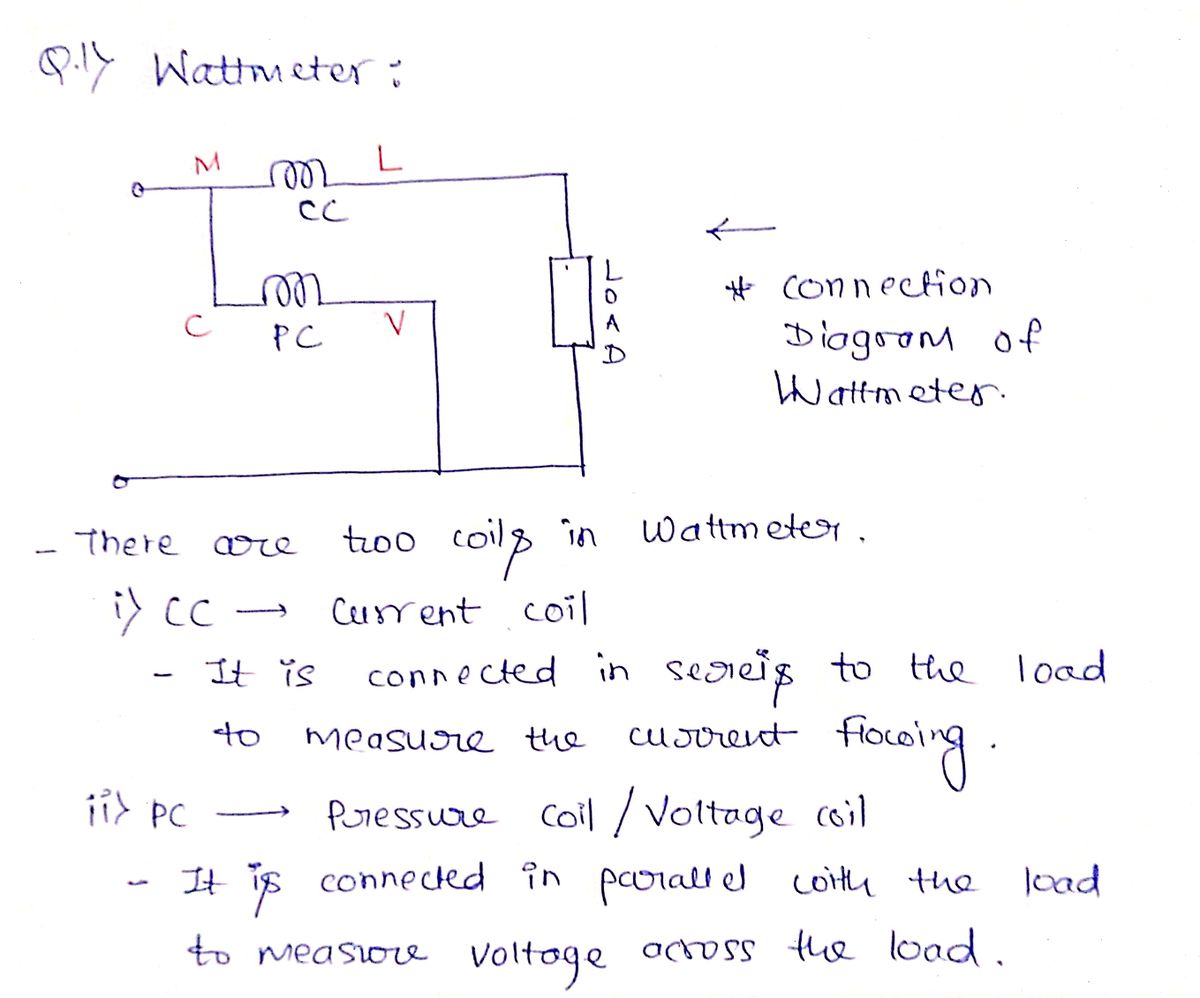 Q.1> Wattmeter :
M L
CC
C PC V
LOAD
←
* connection
Diagram of
Wattmeter.
- There are two coils in Wattmeter.
i> CC → Current coil
- It is connected in sereis to the load
to measure the current flowing.
ii> PC → Pressure coil / Voltage coil
- It is connected in parallel with the load
to measure voltage across the load.